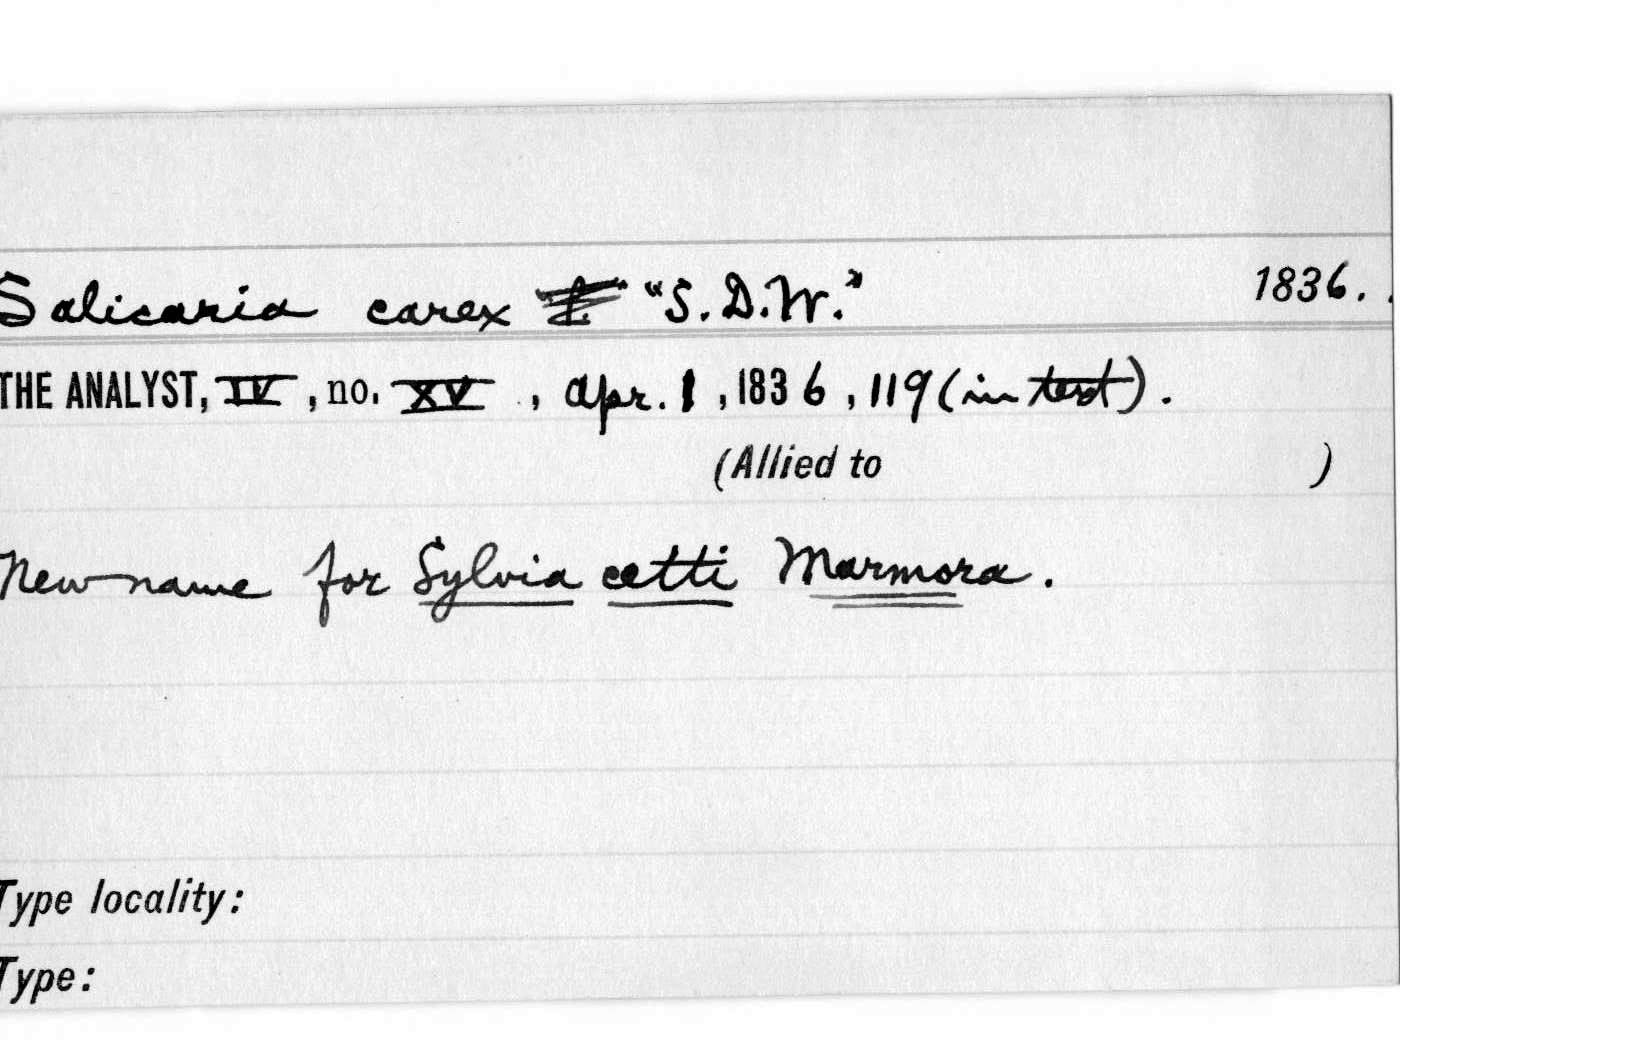 Salicaria carex "S.D.W." 1836.
THE ANALYST, IV, no. XV, Apr. 1, 1836, 119 (in text).
(Allied to )
New name for Sylvia cetti Marmora.
Type locality:
Type: